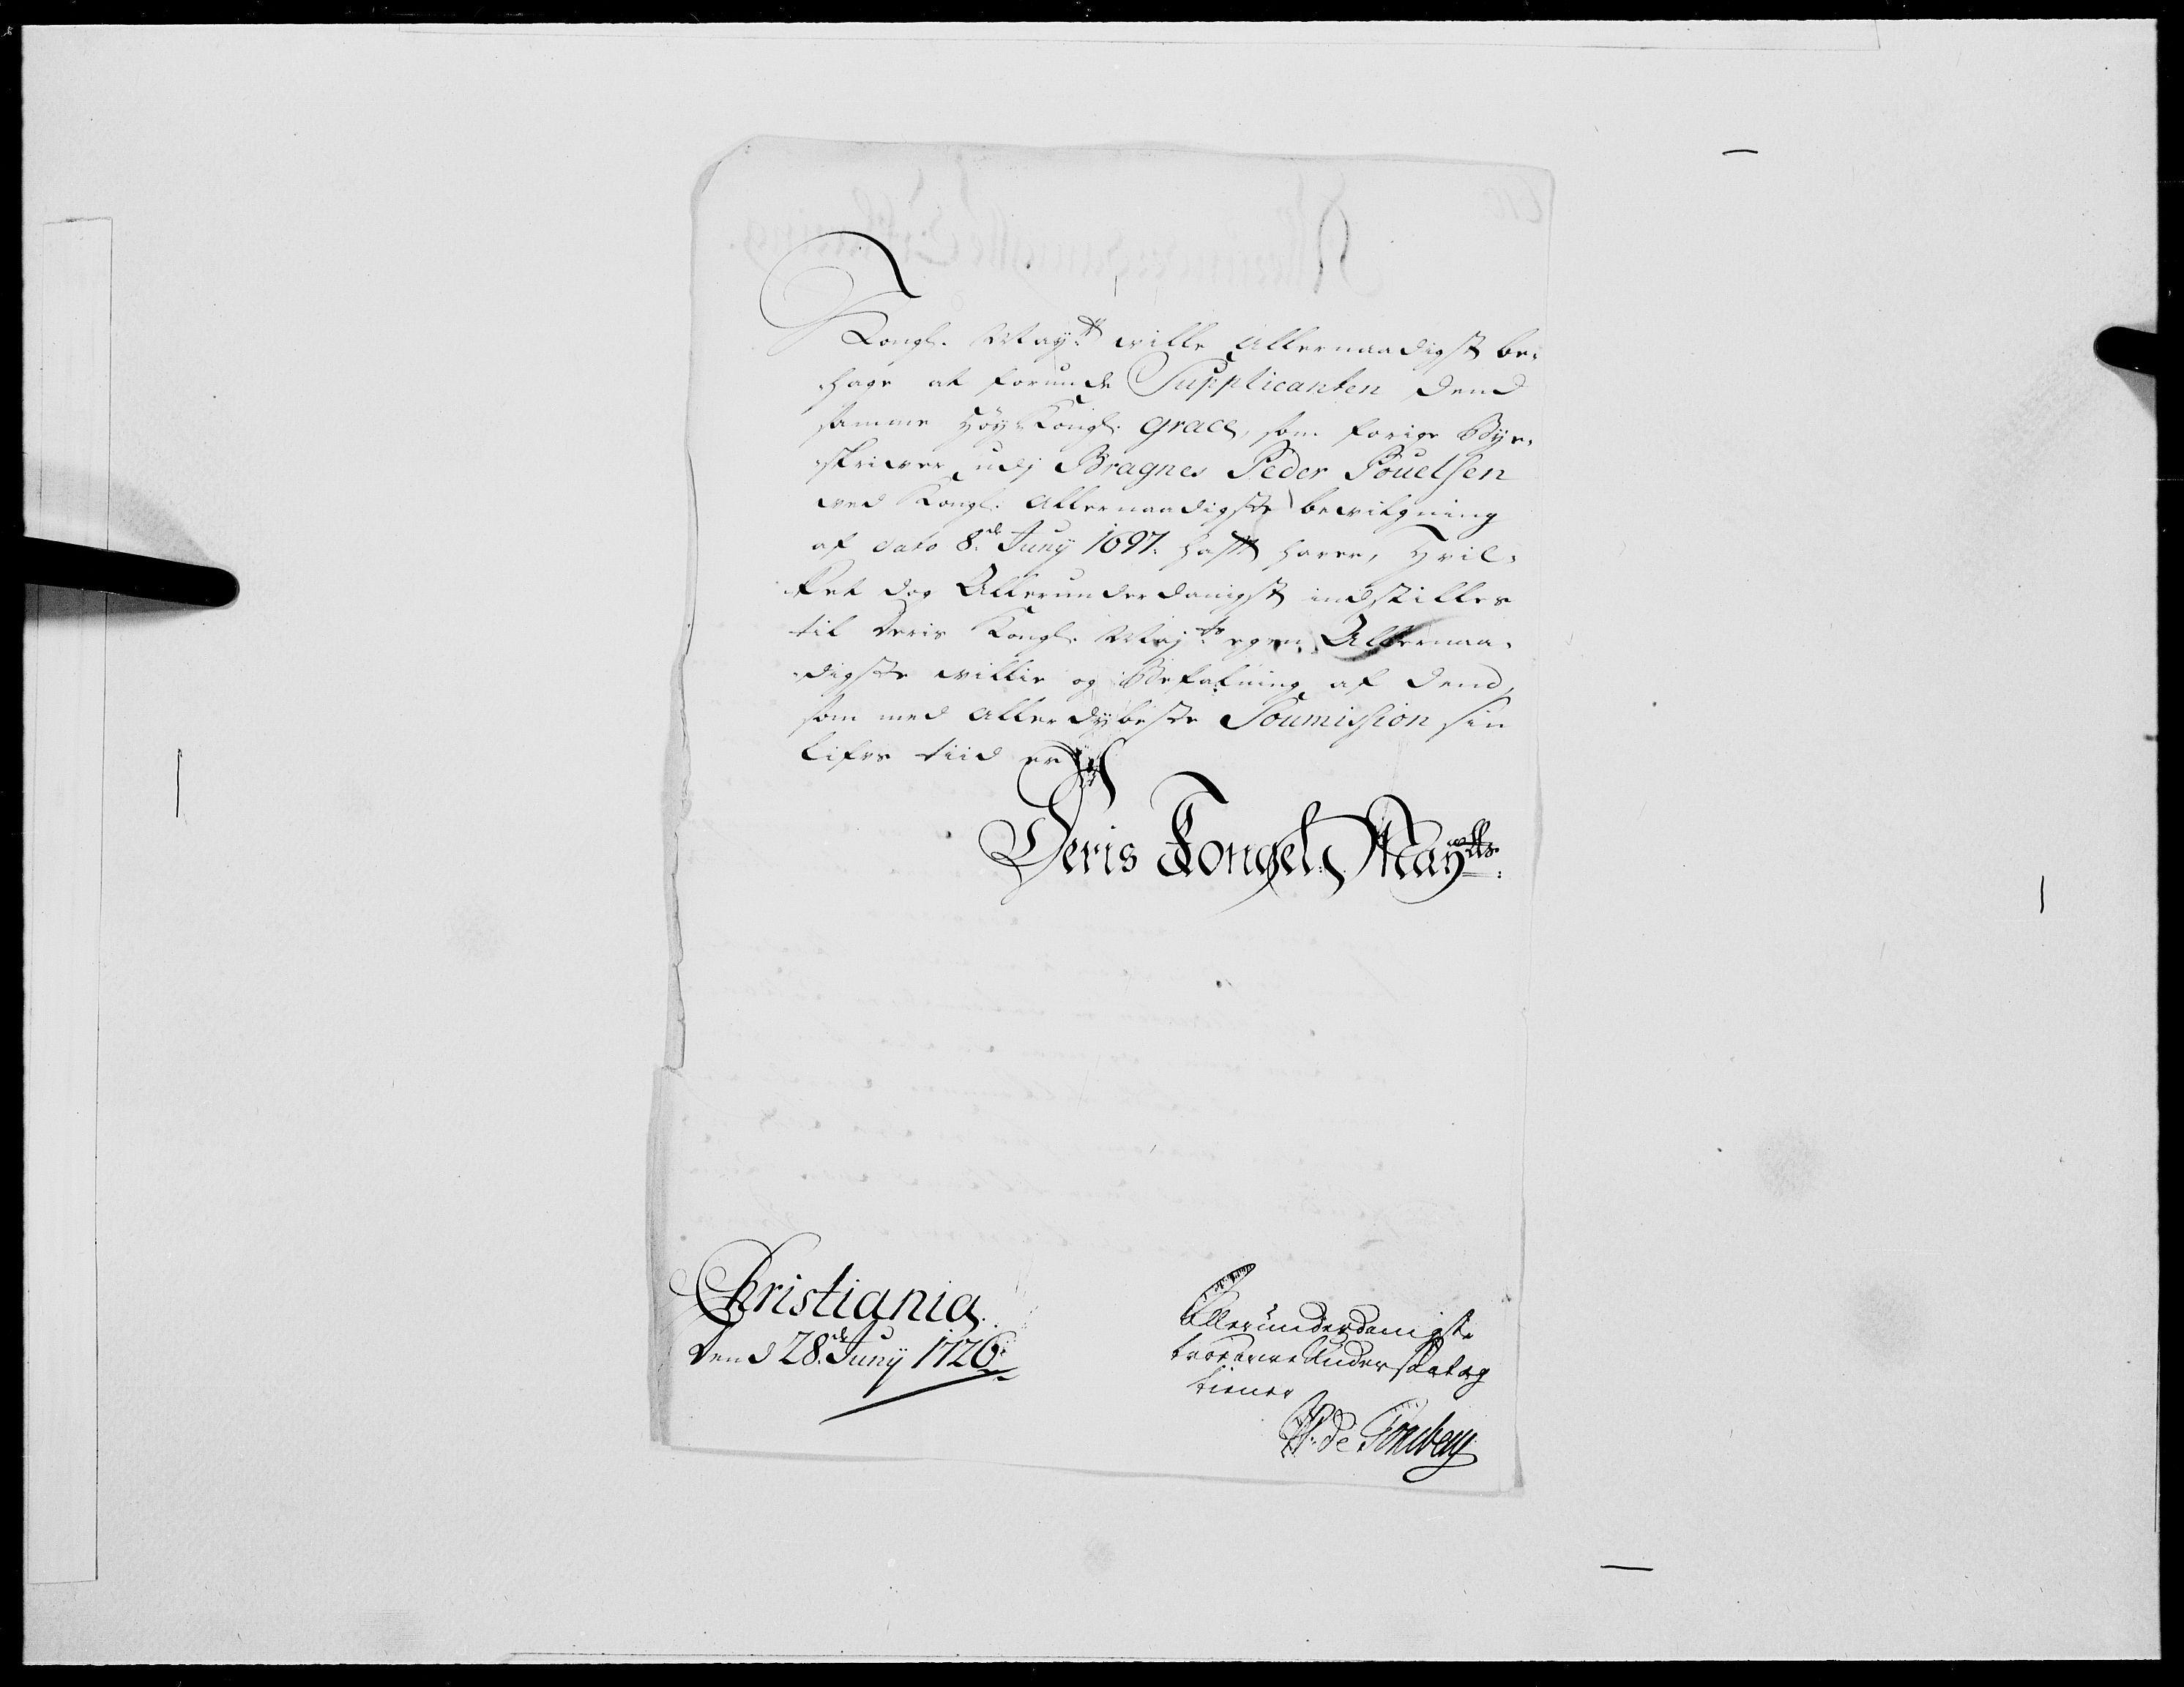 Kongl. Maÿ:tt ville Allernaadigst be-
hage at forunde Supplicanten dend
samme Høÿ-Kongl: Grace, som forige Bÿe-
skriver udj Bragnes Peder Pouelsen
ved Kongl: Allernaadigste bevilgning
af dato 8.de Junÿ 1697. hafft haver, Hvil-
ket dog Allerunderdanigst indstilles
til Deris Kongl. Maj:ts egen Allernaa-
digste villie og Befalning af dend,
som med allerdÿbeste Soumission sin
lifs tiid er
Deris Kongel: Maÿ:tts
Christiania
dend 28.de Junÿ 1726
Allerunderdanigste
troe arve Undersaat og
tiener
de Tonsberg